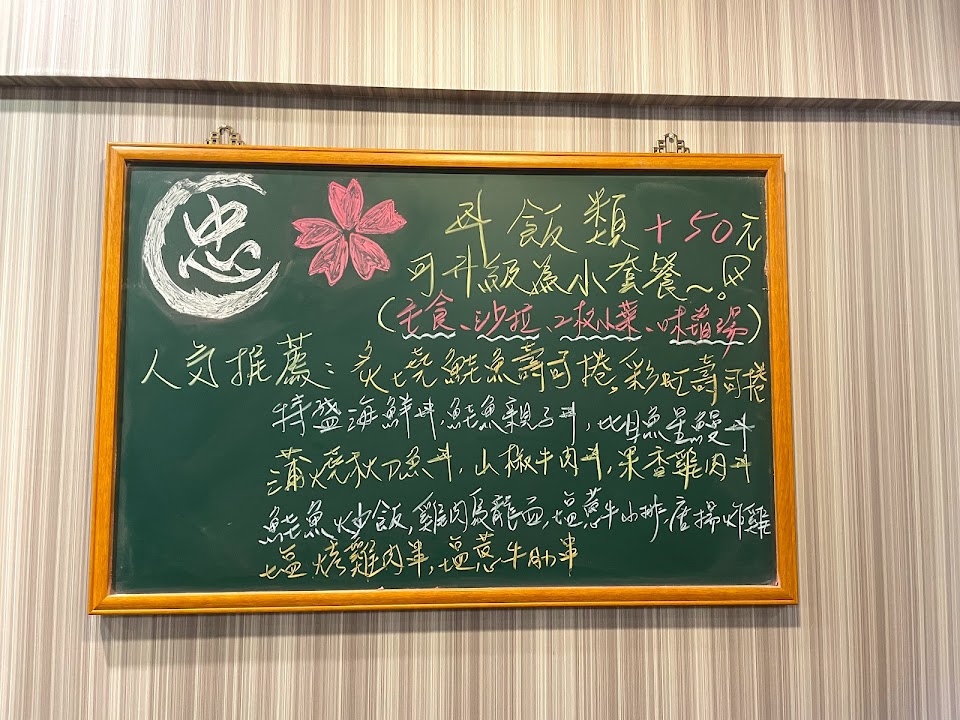 忠
丼飯類+50元
可升級為小套餐~。
(主食、沙拉、2枚小菜、味增湯)
人気推薦:炙燒鮭魚壽司捲,彩虹壽司捲
特盛海鮮丼,鮭魚親子丼,比目魚星鰻丼
蒲燒秋刀魚丼,山椒牛肉丼,果香雞肉丼
鮭魚炒飯,雞肉烏龍面,塩蔥牛小排,唐揚炸雞
塩烤雞肉串,塩蔥牛肋串